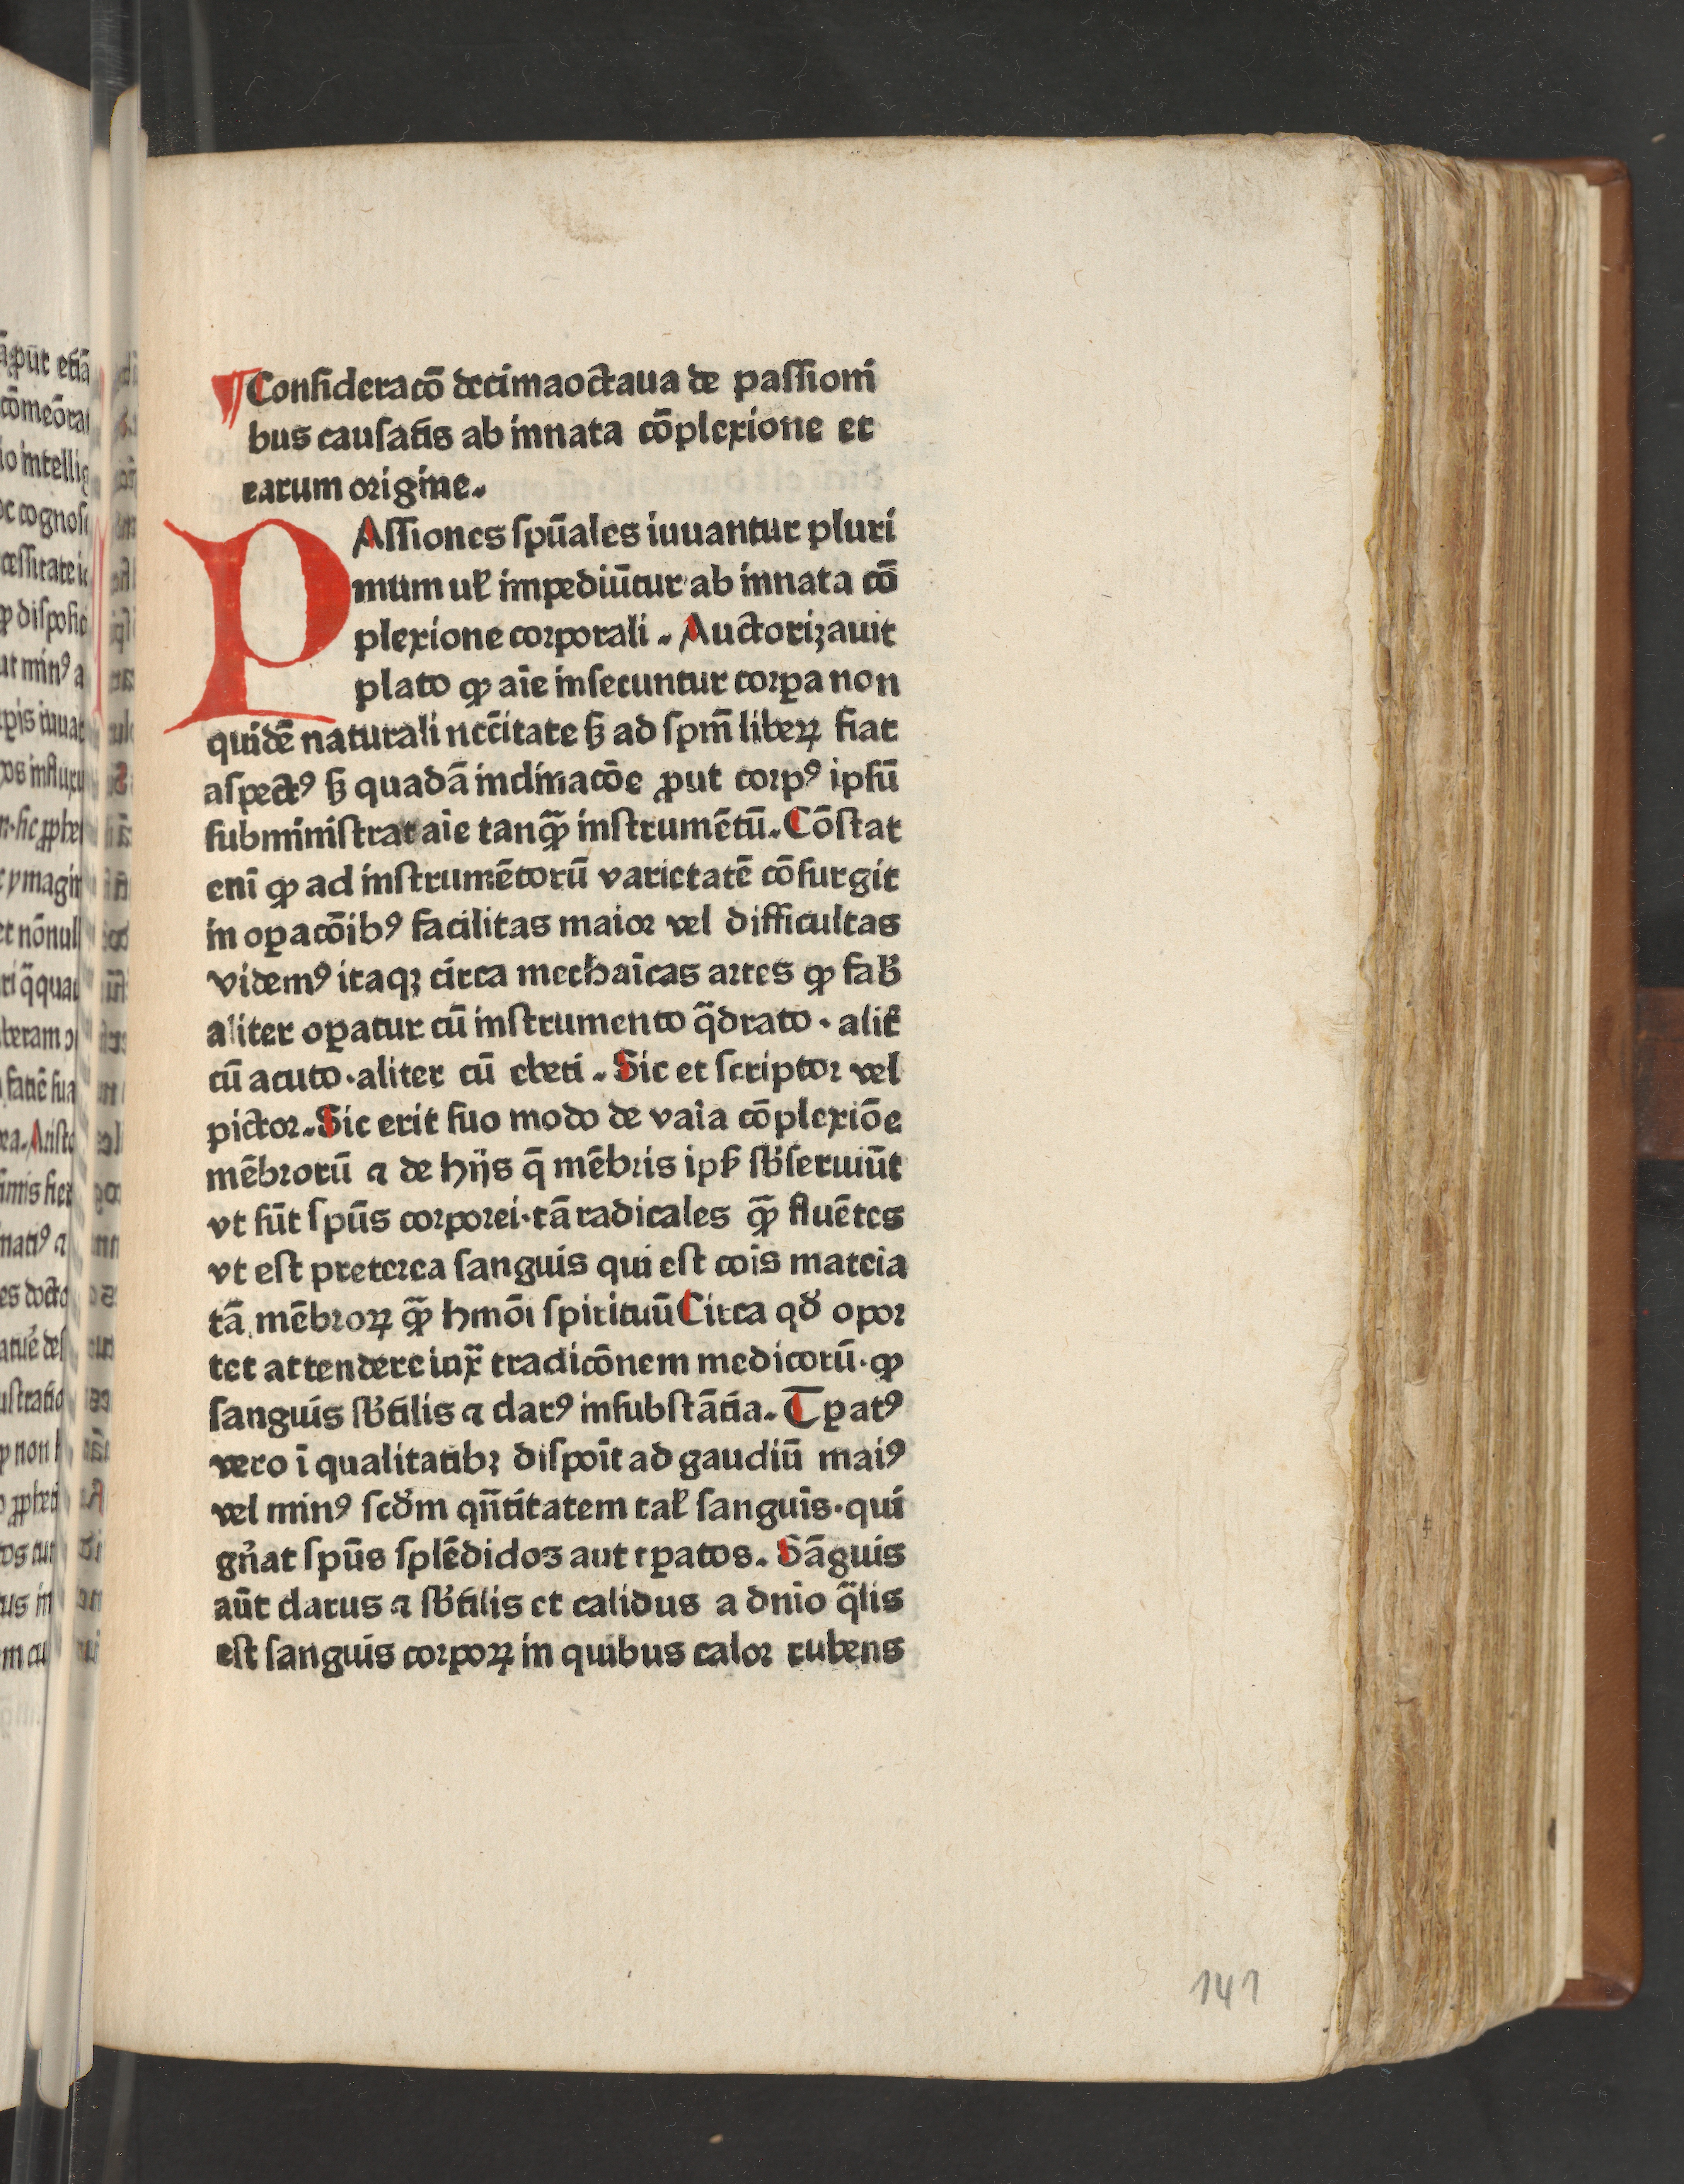 ¶ Consideracō decimaoctaua de passioni
bus causatis ab innata cōplexione et
earum origine.
PAssiones spūales iuuantur pluri
mum ul̛ impediūtur ab innata cō
plexione corporali. Auctorizauit
plato ꝙ aīe insecuntur corꝑa non
quidē naturali nccītate ꝫ ad spm̄ liberꝝ fiat
aspectꝰ ꝫ quadā inclinacōe ꝓut corpꝰ ipsū
subministrat aīe tanꝙ̄ instrumētū. Cōstat
enī ꝙ ad instrumētorū varietatē cōsurgit
in oꝑacōibꝰ facilitas maior vel difficultas
videmꝰ itaqꝫ circa mechaīcas artes ꝙ fab̛
aliter oꝑatur cū instrumento q̄drato · alit̛
cū acuto · aliter cū ebeti . Sic et scriptor vel
pictor. Sic erit suo modo de vaīa cōplexiōe
mēbrorū ⁊ de hijs q̄ mēbris ip̄s sb̛seruiūt
vt sūt spūs corporei · tā radicales ꝙ̄ fluētes
vt est preterea sanguis qui est cōis mateīa
tā mēbroꝝ ꝙ̄ hmōi spirituū Circa qd̛ opor
tet attendere iux̄ tradicōnem medicorū · ꝙ
sanguis sb̛tilis ⁊ clarꝰ in substātia. Tꝑatꝰ
vero ī qualitatibꝫ dispoīt ad gaudiū maiꝰ
vel minꝰ scd̛m qn̄titatem tal̛ sanguīs · qui
gn̛at spūs splēdidos aut tꝑatos. Sāguis
aūt clarus ⁊ sb̛tilis et calidus a dn̄io q̄lis
est sanguis corpoꝝ in quibus calor rubens
141